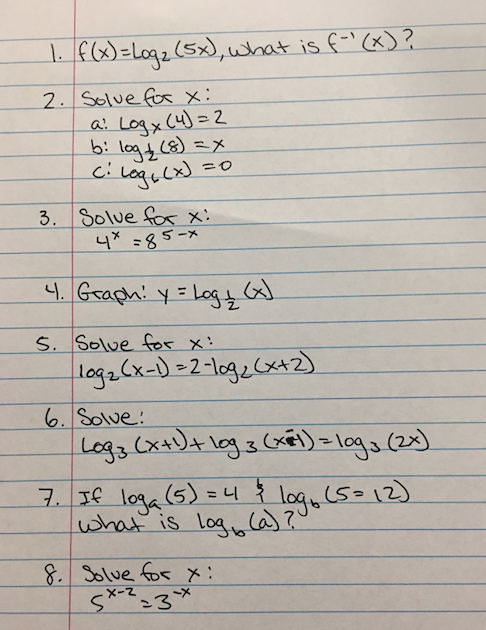 1. f(x)=Log₂(5x), what is f⁻¹(x)?
2. Solve for x:
a: Log_x(4)=2
b: log_½(8)=x
c: Log₆(x)=0
3. Solve for x:
4ˣ=8⁵⁻ˣ
4. Graph: y=Log_½(x)
5. Solve for x:
log₂(x-1)=2-log₂(x+2)
6. Solve:
Log₃(x+1)+log₃(x-1)=log₃(2x)
7. If logₐ(5)=4 & log_b(5=12)
what is log_b(a)?
8. Solve for x:
5ˣ⁻²=3⁻ˣ